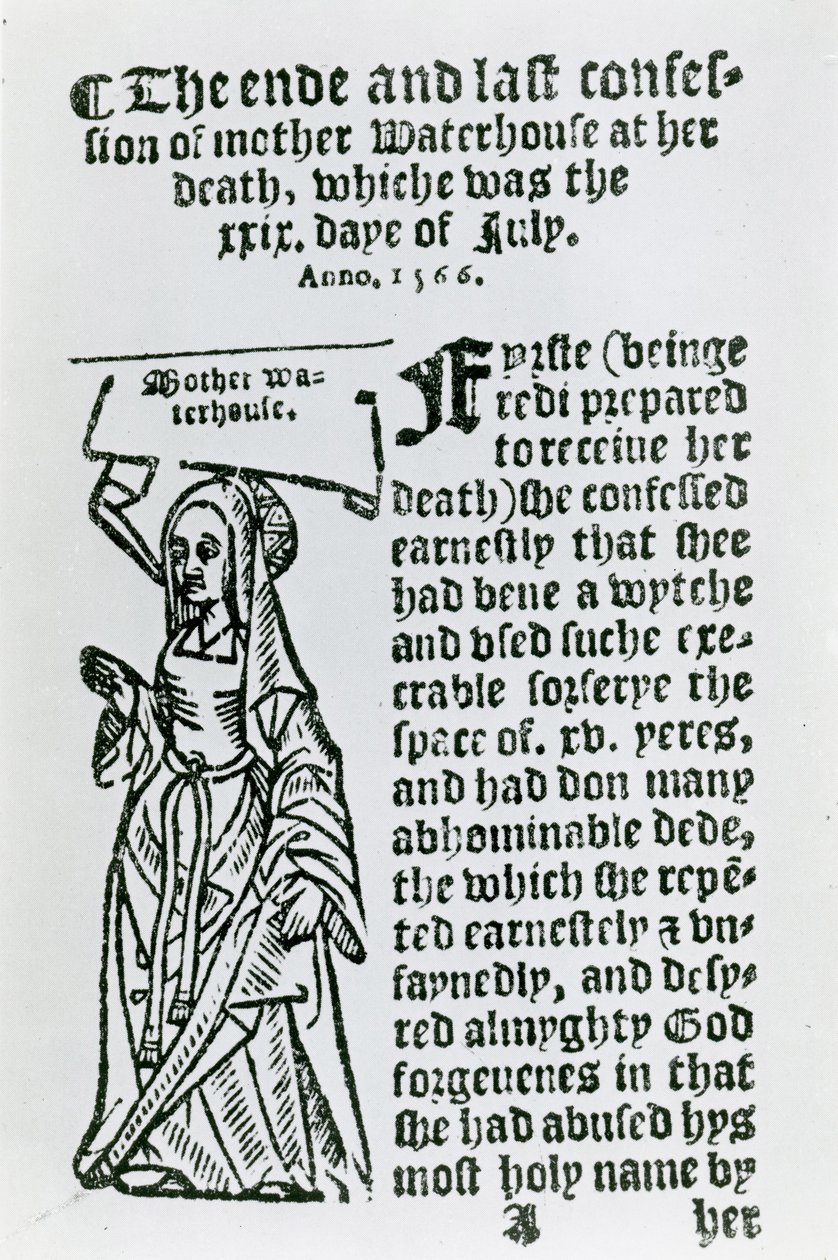 ¶ The ende and last confes⸗
sion of mother Waterhouse at her
death, whiche was the
xxix. daye of July.
Anno. 1566.
Mother wa=
terhouse.
Fyrste (beinge
redi prepared
to receiue her
death) she confessed
earnestly that shee
had bene a wytche
and vsed suche exe⸗
crable sorserye the
space of. xv. yeres,
and had don many
abhominable dede,
the which she repē⸗
ted earnestely & vn⸗
faynedly, and desy⸗
red almyghty God
forgeuenes in that
she had abused hys
most holy name by
A her